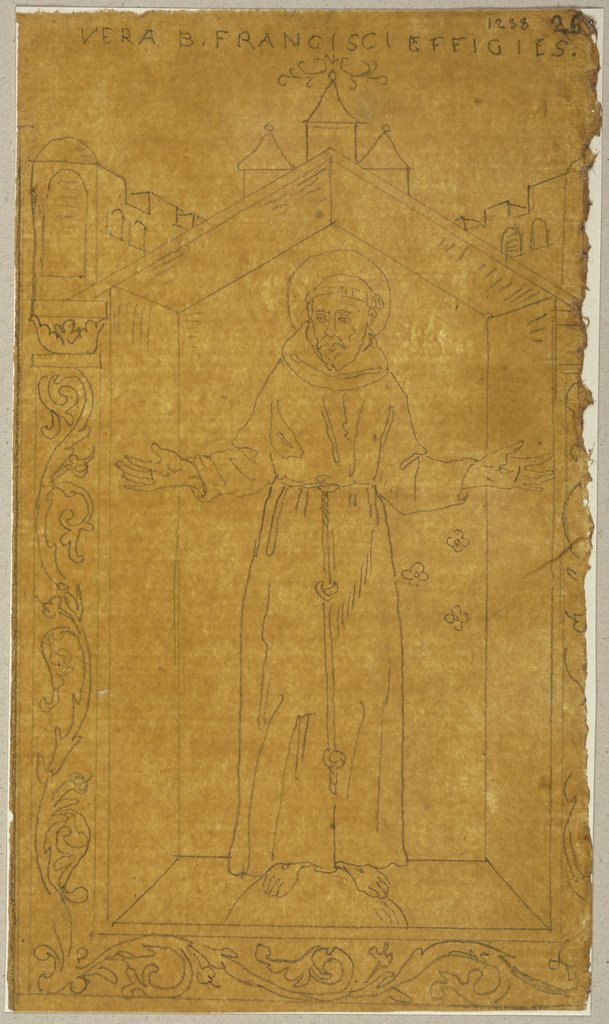 1288
VERA B. FRANCISCI EFFIGIES.